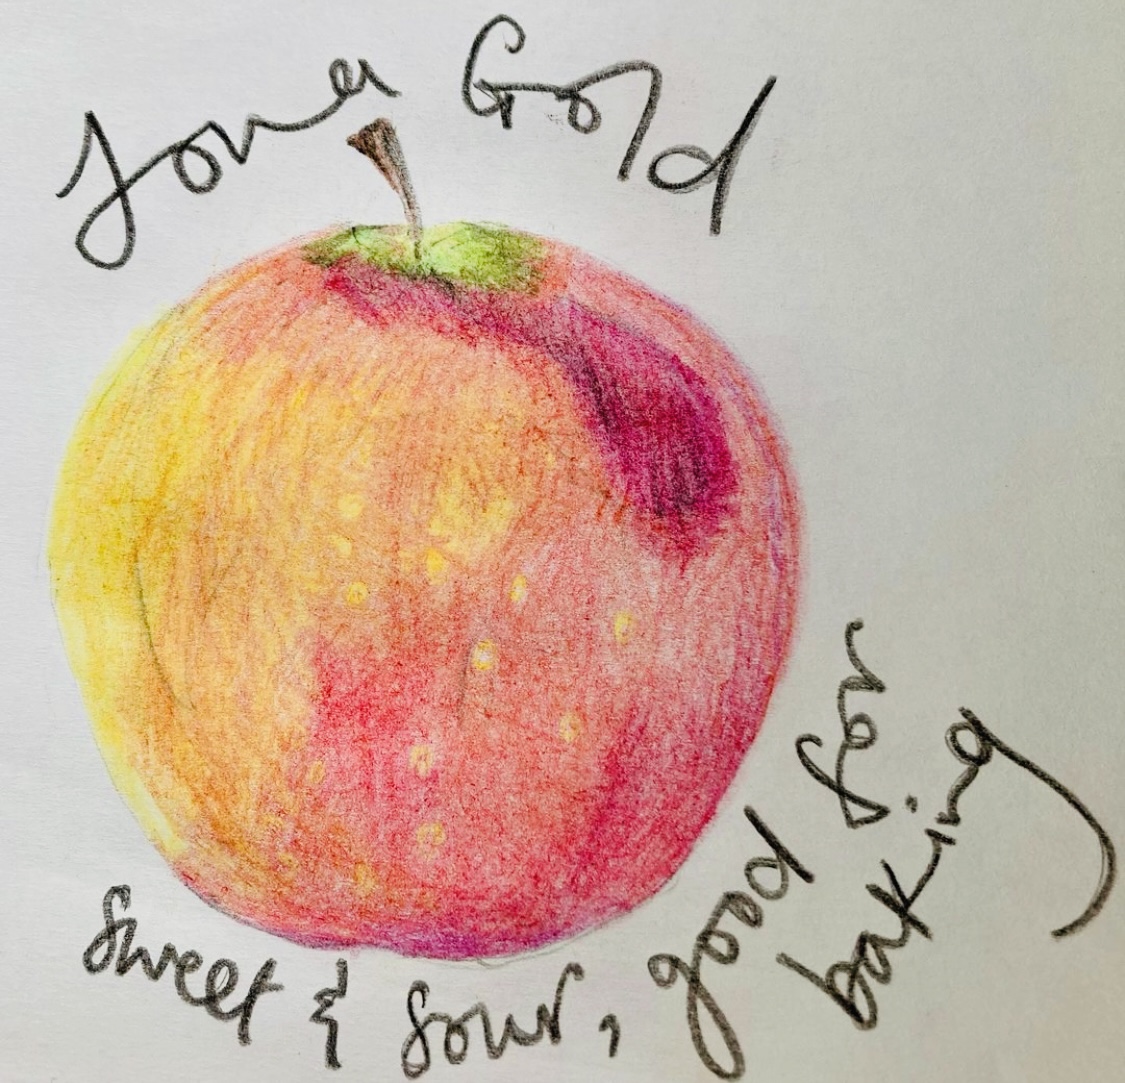 Jona Gold
sweet & sour, good for
baking